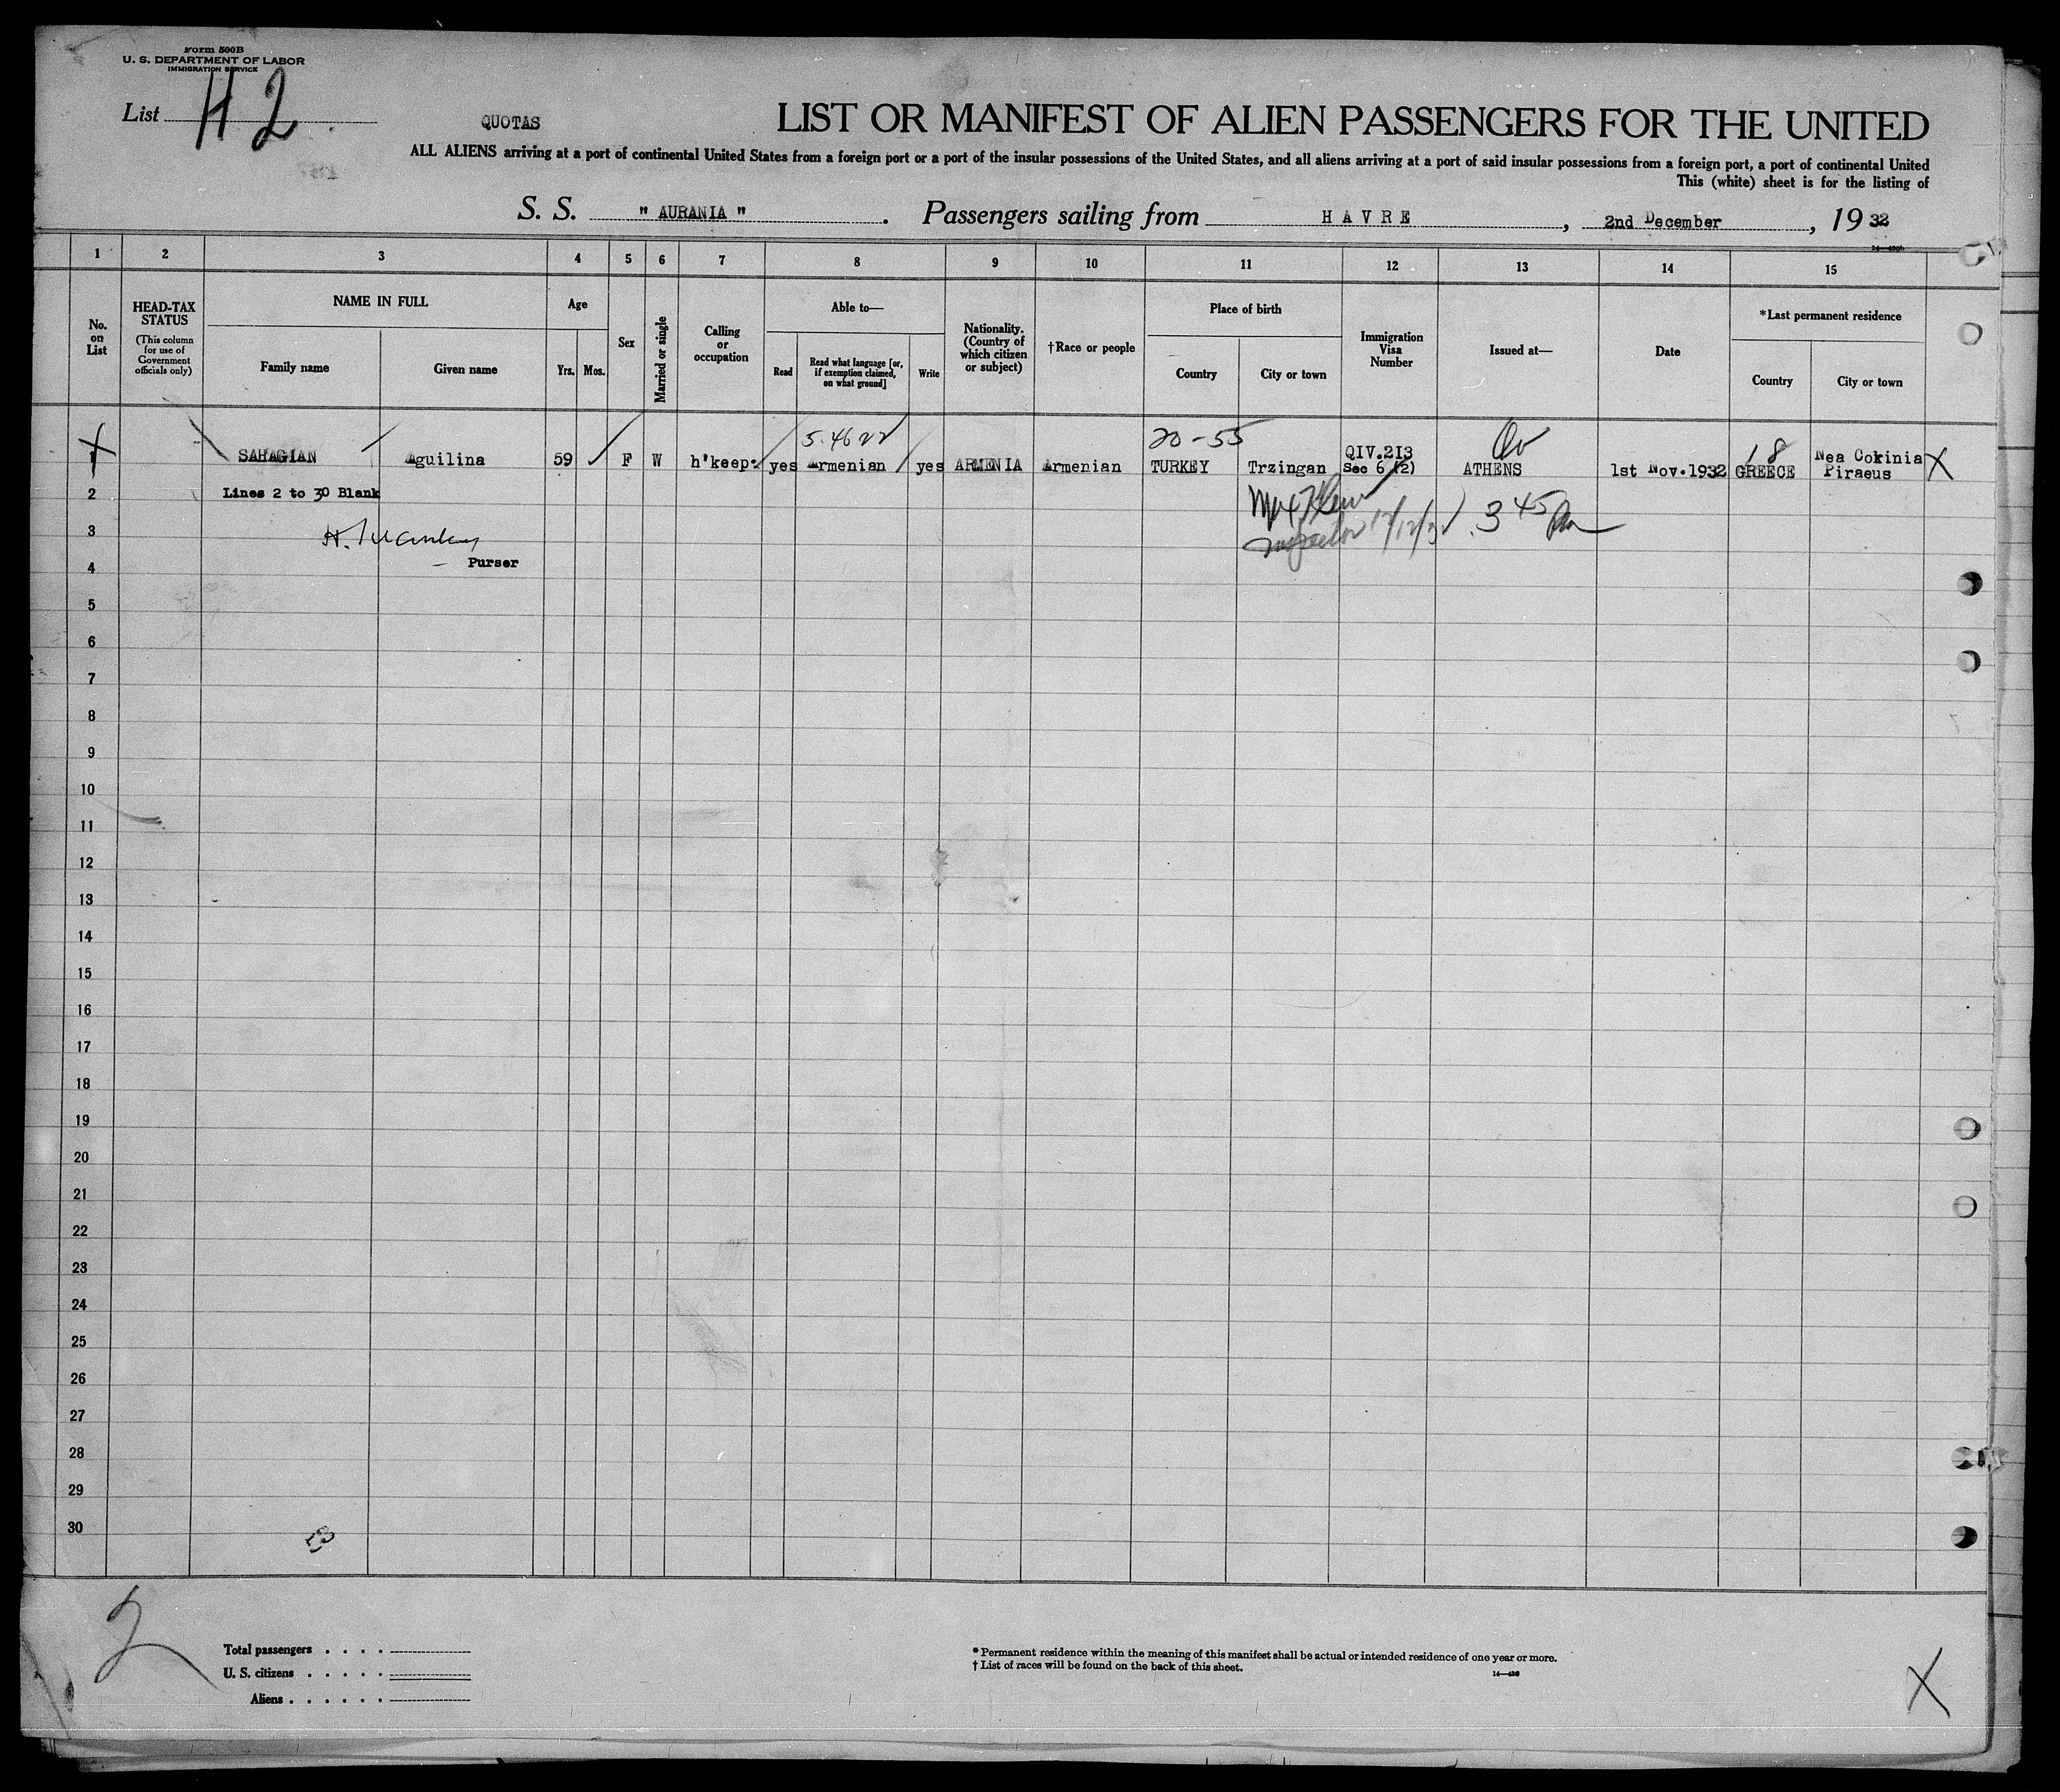 Form 500B
U. S. DEPARTMENT OF LABOR
IMMIGRATION SERVICE
List H 2
QUOTAS
LIST OR MANIFEST OF ALIEN PASSENGERS FOR THE UNITED
ALL ALIENS arriving at a port of continental United States from a foreign port or a port of the insular possessions of the United States, and all aliens arriving at a port of said insular possessions from a foreign port, a port of continental United
This (white) sheet is for the listing of
S. S. " AURANIA ". Passengers sailing from HAVRE, 2nd December, 1932
1 2 3 4 5 6 7 8 9 10 11 12 13 14 15
No. on List
HEAD-TAX STATUS
(This column for use of Government officials only)
NAME IN FULL
Family name
Given name
Age
Yrs. Mos.
Sex
Married or single
Calling or occupation
Able to—
Read
Read what language [or, if exemption claimed, on what ground]
Write
Nationality. (Country of which citizen or subject)
†Race or people
Place of birth
Country
City or town
Immigration Visa Number
Issued at—
Date
*Last permanent residence
Country
City or town
5.4622 20-55 18
SAHAGIAN Aguilina 59 F W h'keep. yes Armenian yes ARMENIA Armenian TURKEY Trzingan QIV.213 Sec 6 (2) ATHENS 1st Nov.1932 GREECE Nea Cokinia Piraeus X
2
Lines 2 to 30 Blank
3
Inspector 12/12/32 3 45 Pm
4
Purser
5
6
7
8
9
10
11
12
13
14
15
16
17
18
19
20
21
22
23
24
25
26
27
28
29
30
2
Total passengers . . . .
U. S. citizens . . . . .
Aliens . . . . . .
* Permanent residence within the meaning of this manifest shall be actual or intended residence of one year or more.
† List of races will be found on the back of this sheet.
X